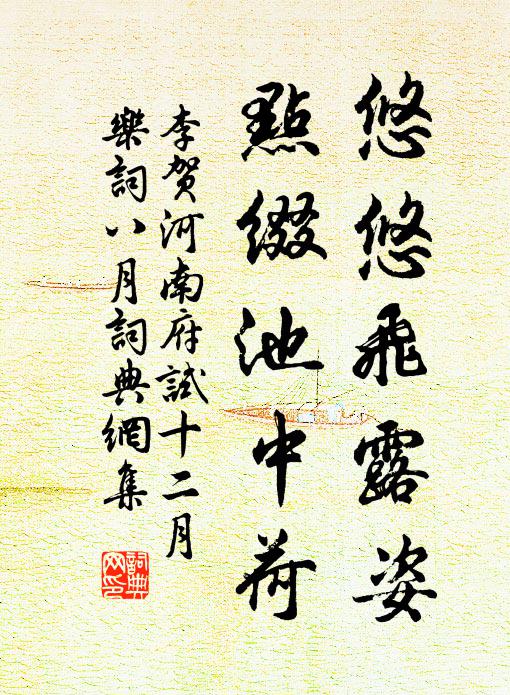 悠悠飛露姿
點綴池中荷
李賀河南府試十二月
樂詞八月詞典網集
詞典
网印